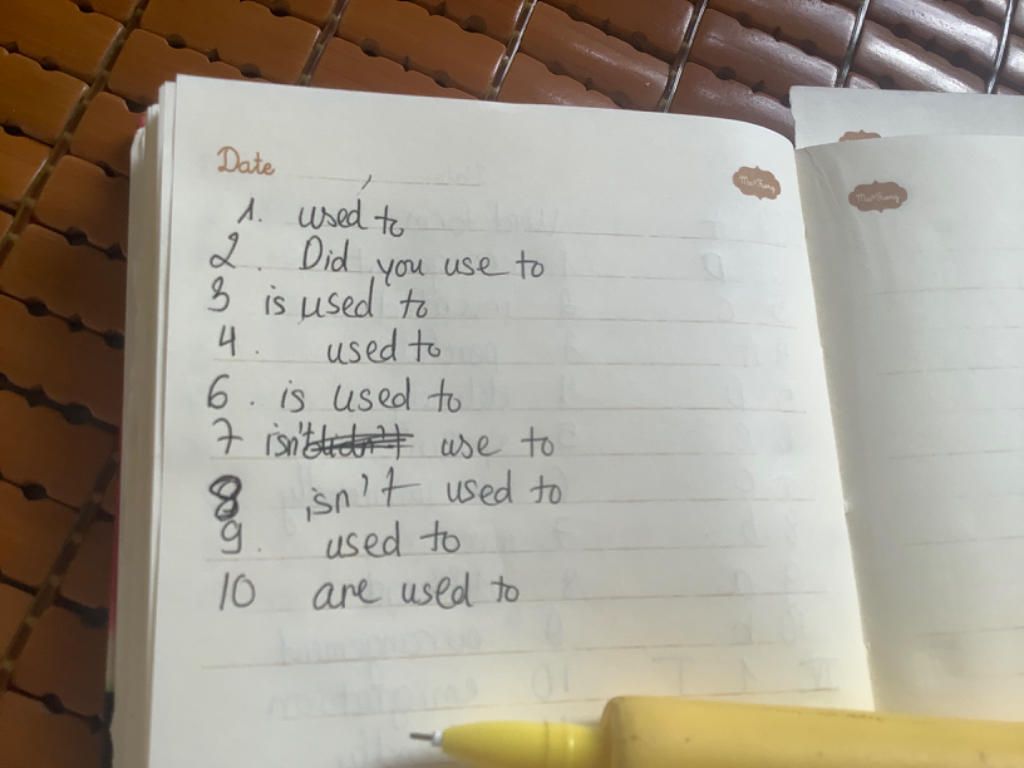 Date
1. used to
2. Did you use to
3 is used to
4. used to
6. is used to
7 isn't use to
8 isn't used to
9. used to
10 are used to